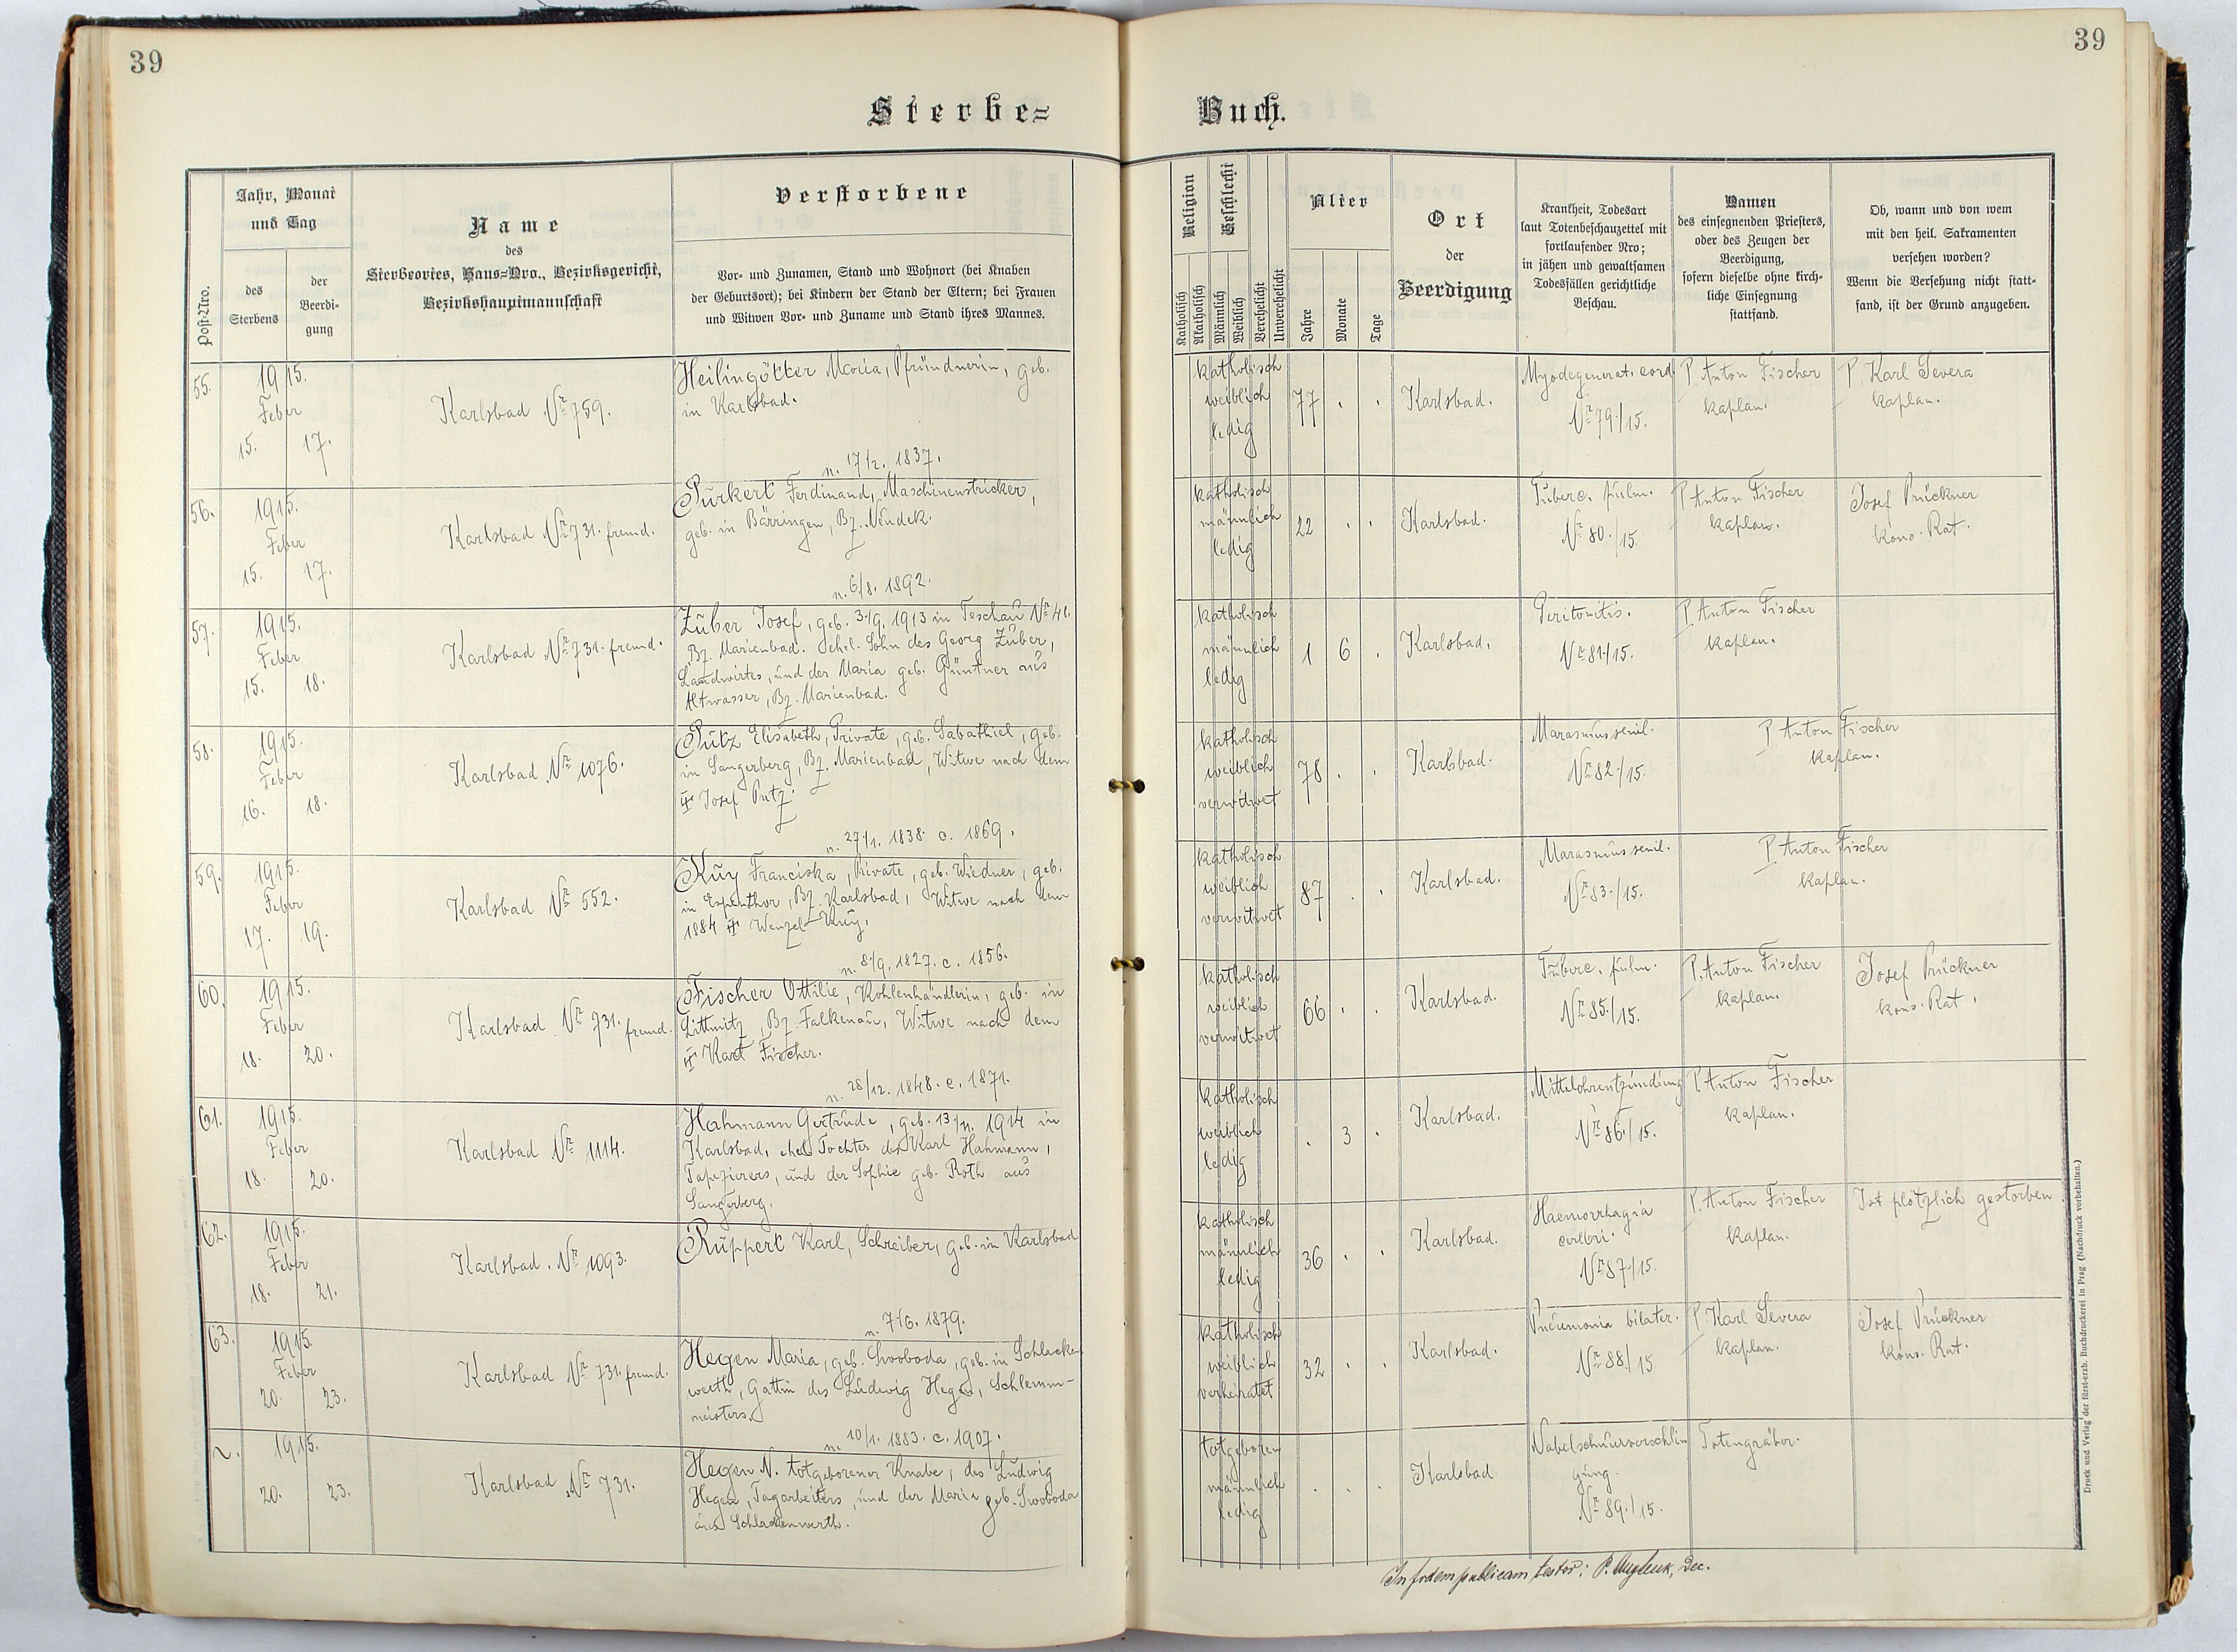 39
39
Sterbe=
Buch.
Post-Nro.
Jahr, Monat
und Tag
des
Sterbens
der
Beerdi-
gung
Name
des
Sterbeortes, Haus-Nro., Bezirksgericht,
Bezirkshauptmannschaft
Verstorbene
Vor- und Zunamen, Stand und Wohnort (bei Knaben
der Geburtsort); bei Kindern der Stand der Eltern; bei Frauen
und Witwen Vor- und Zuname und Stand ihres Mannes.
Religion
Katholisch
Akatholisch
Geschlecht
Männlich
Weiblich
Verehelicht
Unverehelicht
Alter
Jahre
Monate
Tage
Ort
der
Beerdigung
Krankheit, Todesart
laut Totenbeschauzettel mit
fortlaufender Nro;
in jähen und gewaltsamen
Todesfällen gerichtliche
Beschau.
Namen
des einsegnenden Priesters,
oder des Zeugen der
Beerdigung,
sofern dieselbe ohne kirch-
liche Einsegnung
stattfand.
Ob, wann und von wem
mit den heil. Sakramenten
versehen worden?
Wenn die Versehung nicht statt-
fand, ist der Grund anzugeben.
55.
1915.
Feber
15. 17.
Karlsbad Nr 759.
Heilingötter Maria, Pfründnerin, geb.
in Karlsbad.
n. 17/2. 1837.
katholisch
weiblich
ledig
77 . .
Karlsbad.
Myodegenerat. cord.
Nr 79./15.
P. Anton Fischer
kaplan.
P. Karl Severa
kaplan.
56.
1915.
Feber
15. 17.
Karlsbad Nr 731. fremd.
Purkert Ferdinand, Maschinenstricker,
geb. in Bärringen, Bz. Neudek.
n. 6/8. 1892.
katholisch
männlich
ledig
22 . .
Karlsbad.
Tuberc. pulm.
Nr 80./15.
P. Anton Fischer
kaplan.
Josef Prückner
kons. Rat.
57.
1915.
Feber
15. 18.
Karlsbad Nr 731. fremd.
Zuber Josef, geb. 3./9. 1913 in Teschau Nr 41.
Bz. Marienbad. Ehel. Sohn des Georg Zuber,
Landwirtes, und der Maria geb. Güntner aus
Altwasser, Bz. Marienbad.
katholisch
männlich
ledig
1 6 .
Karlsbad.
Peritonitis.
Nr 81./15.
P. Anton Fischer
kaplan.
58.
1915.
Feber
16. 18.
Karlsbad Nr 1076.
Putz Elisabeth, Private, geb. Sabathiel, geb.
in Sangerberg, Bz. Marienbad, Witwe nach dem
Josef Putz.
n. 27/1. 1838. c. 1869.
katholisch
weiblich
verwitwet
78 . .
Karlsbad.
Marasmus senil.
Nr 82./15.
P. Anton Fischer
kaplan.
59.
1915.
Feber
17. 19.
Karlsbad Nr 552.
Kuy Franciska, Private, geb. Wiedner, geb.
in Espenthor, Bz. Karlsbad, Witwe nach dem
1884 Wenzel Kuy.
n. 8/9. 1827. c. 1856.
katholisch
weiblich
verwitwet
87 . .
Karlsbad.
Marasmus senil.
Nr 83./15.
P. Anton Fischer
kaplan.
60.
1915.
Feber
18. 20.
Karlsbad Nr 731. fremd.
Fischer Ottilie, Kohlenhändlerin, geb. in
Littmitz, Bz. Falkenau, Witwe nach dem
Karl Fischer.
n. 28/12. 1848. c. 1871.
katholisch
weiblich
verwitwet
66 . .
Karlsbad.
Tuberc. pulm.
Nr 85./15.
P. Anton Fischer
kaplan.
Josef Prückner
kons. Rat.
61.
1915.
Feber
18. 20.
Karlsbad Nr 1114.
Hahmann Gertrude, geb. 13./11. 1914 in
Karlsbad, ehel. Tochter des Karl Hahmann,
Tapezierers, und der Sophie geb. Roth aus
Sangerberg.
katholisch
weiblich
ledig
. 3 .
Karlsbad.
Mittelohrentzündung
Nr 86./15.
P. Anton Fischer
kaplan.
62.
1915.
Feber
18. 21.
Karlsbad. Nr 1093.
Ruppert Karl, Schreiber, geb. in Karlsbad
n. 7/6. 1879.
katholisch
männlich
ledig
36 . .
Karlsbad.
Haemorrhagia
cerebri.
Nr 87./15.
P. Anton Fischer
kaplan.
Ist plötzlich gestorben.
63.
1915.
Feber
20. 23.
Karlsbad Nr 731. fremd.
Hegen Maria, geb. Swoboda, geb. in Schlacken
werth, Gattin des Ludwig Hegen, Schlemm-
meisters.
n. 10/1. 1883. c. 1907.
katholisch
weiblich
verheiratet
32 . .
Karlsbad.
Pneumonia bilater.
Nr 88./15
P. Karl Severa
kaplan.
Josef Prückner
kons. Rat.
1915.
20. 23.
Karlsbad Nr 731.
Hegen N. totgeborener Knabe, des Ludwig
Hegen, Tagarbeiters, und der Maria geb. Swoboda
aus Schlackenwerth.
totgeboren
männlich
ledig
. . .
Karlsbad
Nabelschnurverschlin
gung.
Nr 89./15.
Totengräber.
In fidem publicam testor: P. Dec.
Druck und Verlag der fürst-erzb. Buchdruckerei in Prag (Nachdruck vorbehalten.)